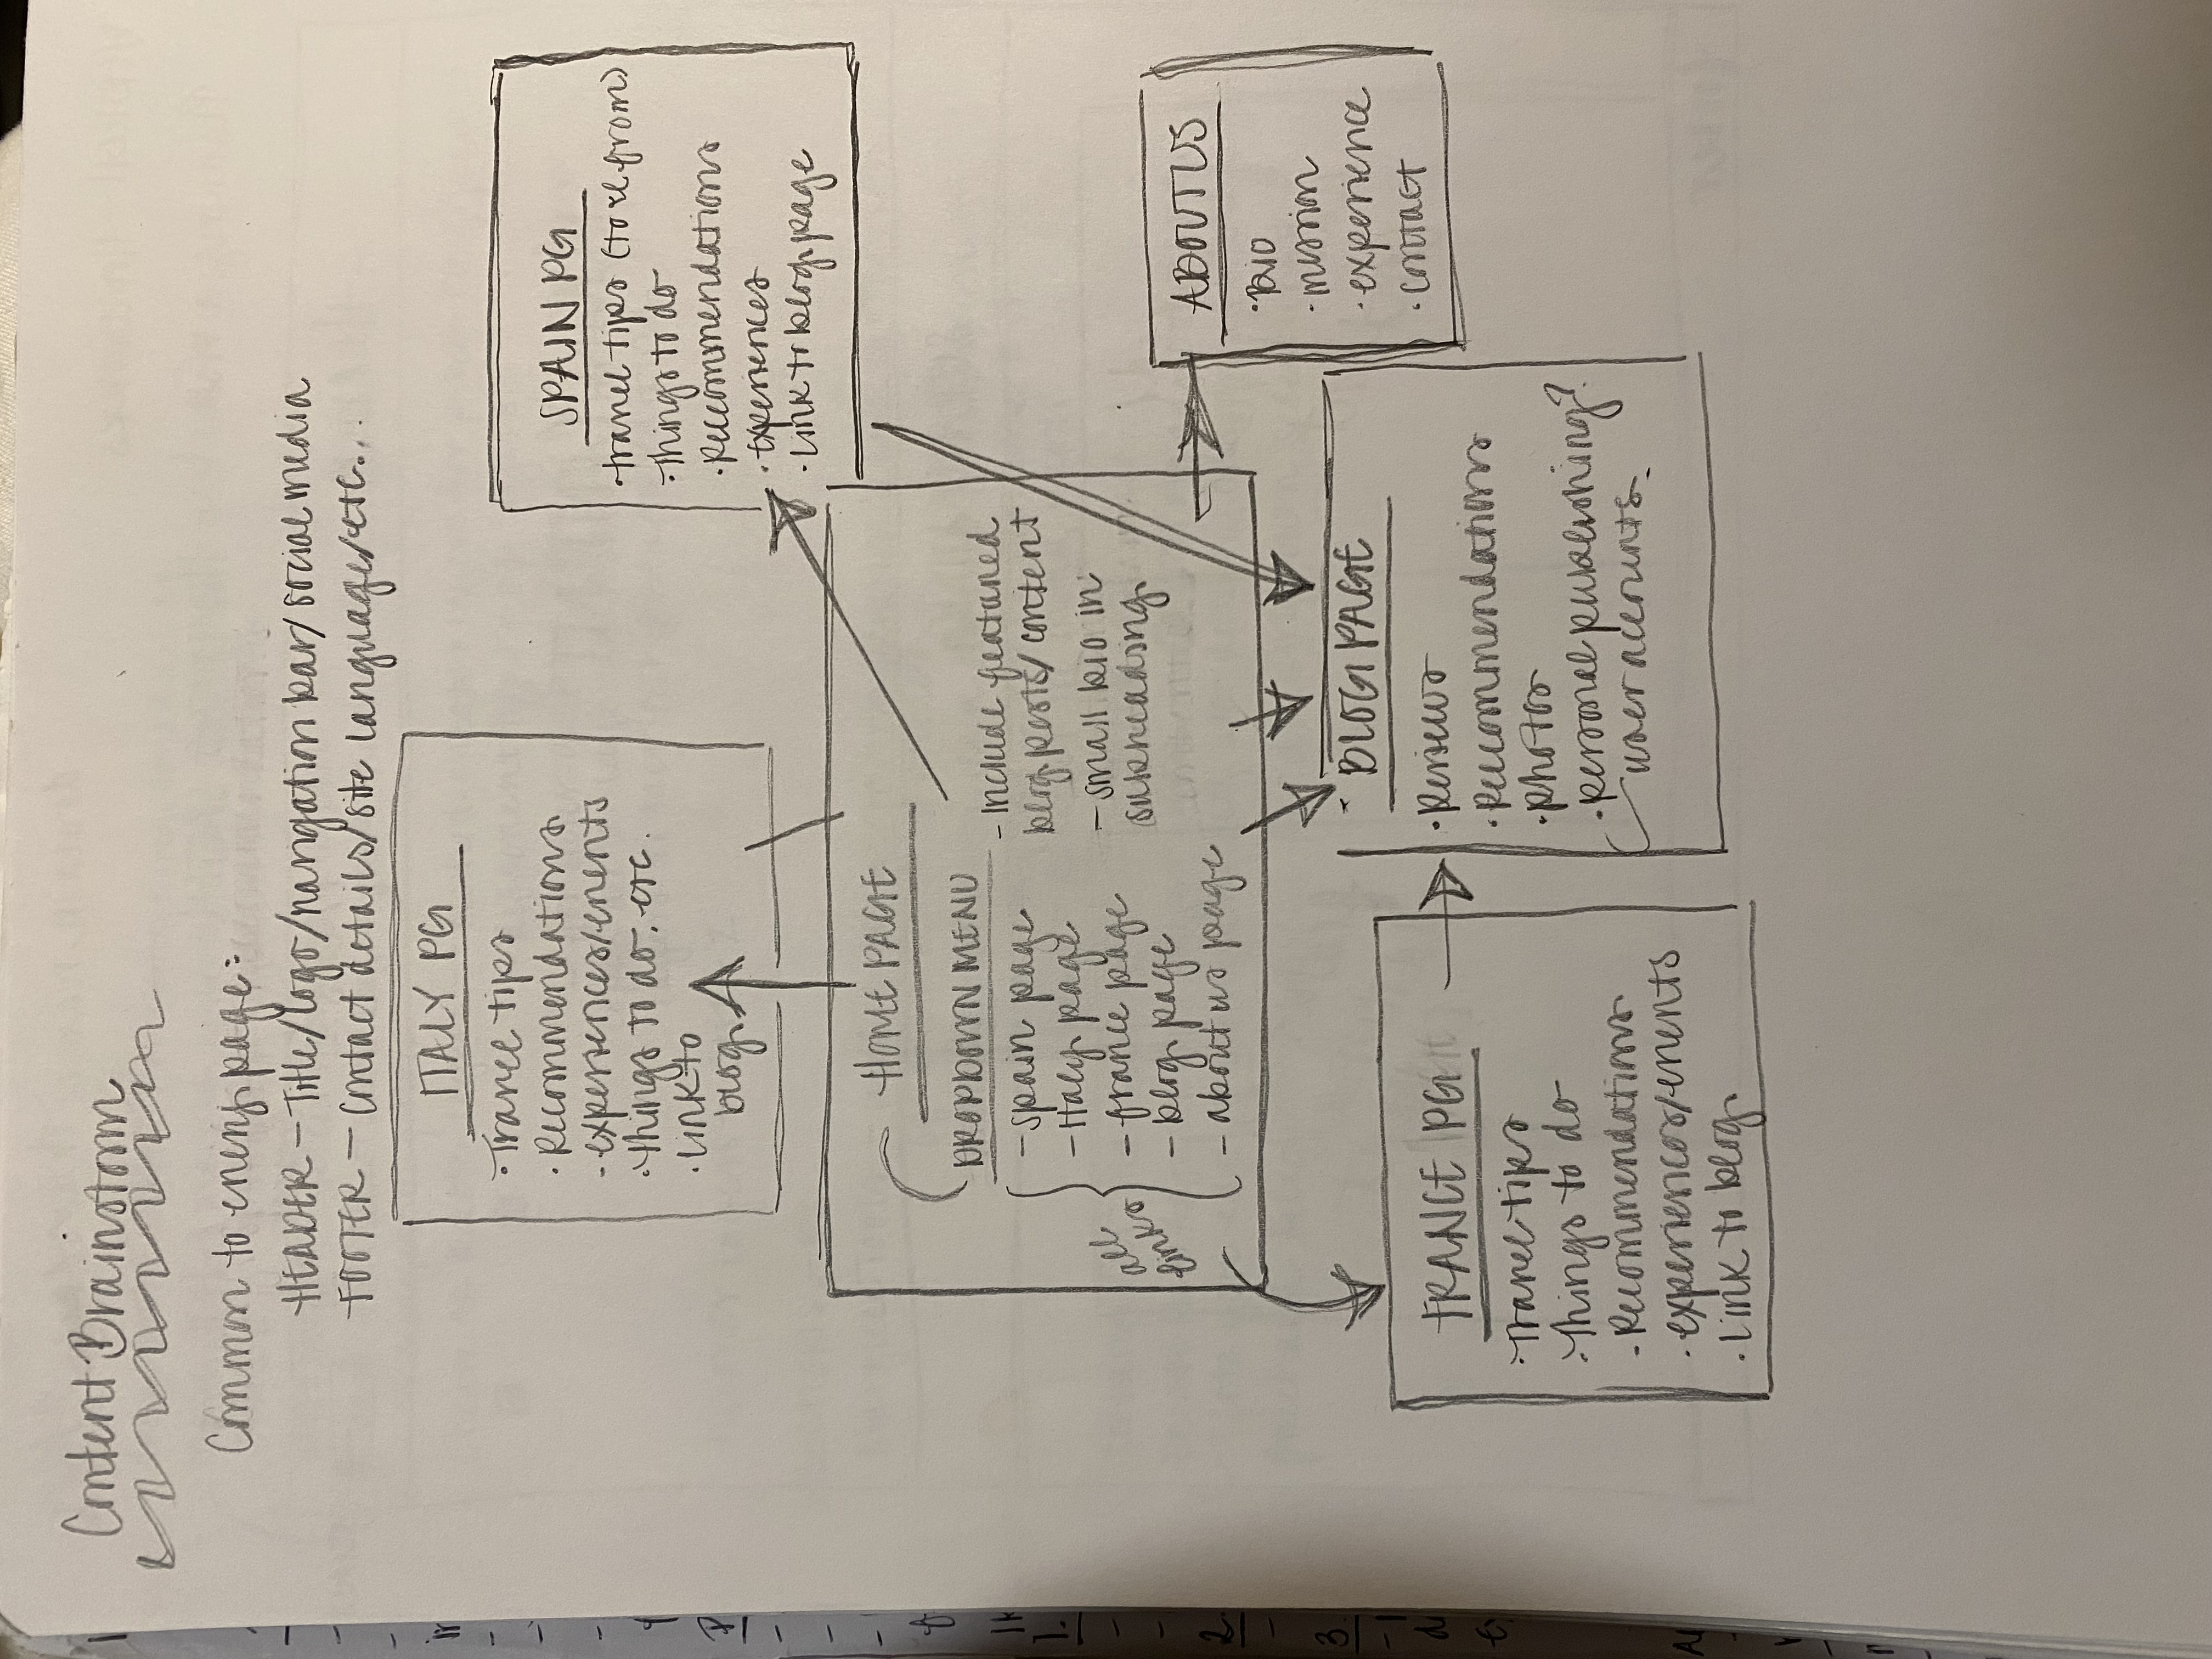 Content Brainstorm
Common to every page:
HEADER – Title/logo/navigation bar/social media
FOOTER – Contact details/site language/etc...
ITALY PG
·Travel tips
·Recommendations
-experiences/events
·Things to do, etc.
·Link to
blog
SPAIN PG
·travel tips (to & from)
·Things to do
·Recommendations
·Experiences
·Link to blog page
HOME PAGE
DROPDOWN MENU
-Spain page
-Italy page
-france page
-blog page
-about us page
all
links
-Include featured
blog posts/content
-small bio in
subheading
ABOUT US
·Bio
·mission
·experience
·contact
FRANCE PG
·Travel tips
·Things to do
-Recommendations
·experiences/events
·Link to blog
BLOG PAGE
·Reviews
·Recommendations
·photos
·Personal publishing?
user accounts